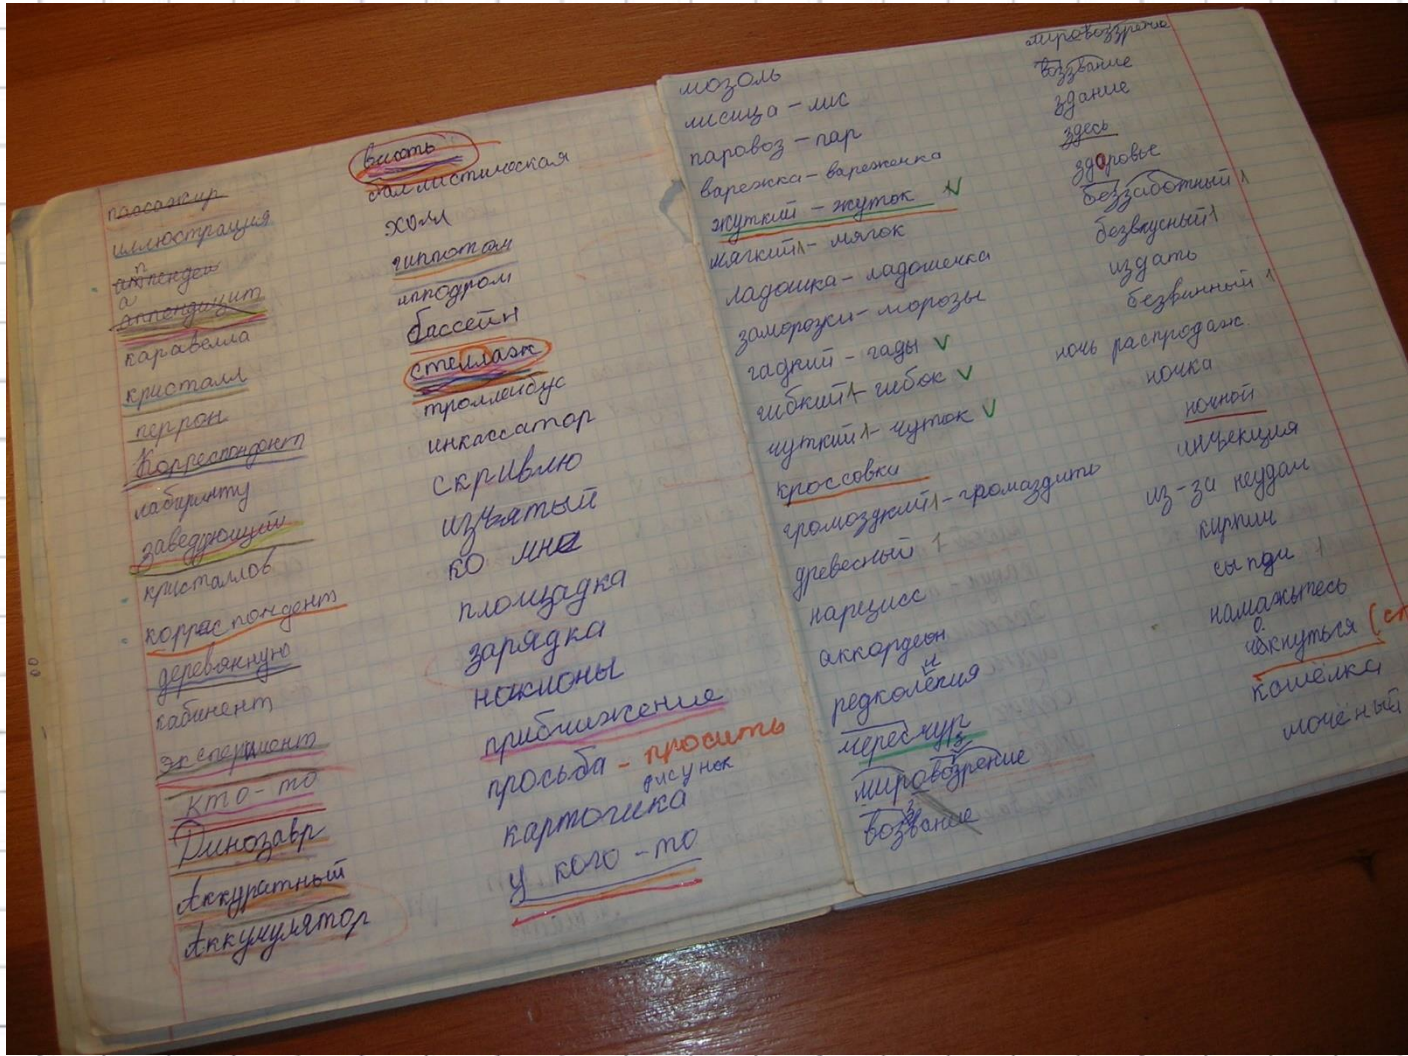 пассажир
иллюстрация
аппендицит
каравелла
кристалл
перрон
Корреспондент
лабиринту
заведующий
кристаллов
корреспондент
деревянную
кабинент
эксперимент
кто-то
Динозавр
Аккуратный
Аккумулятор
баллистическая
холл
гиппотам
ипподром
бассейн
стеллаж
троллейбус
инкассатор
скривлю
изъятый
ко мне
площадка
зарядка
наклоны
приближение
просьба - просить
рисунок
картогика
у кого-то
мозоль
лисица - лис
паровоз - пар
варежка - вареженка
жуткий - жуток
мягкий - мягок
ладошка - ладошечка
заморозки - морозы
гадкий - гады
гибкий - гибок
чуткий - чуток
кроссовки
громоздкий - громаздить
древесный
нарцисс
аккордеон
редколегия
мировозрение
возвание
мировоззрение
воззвание
здание
здесь
здоровье
беззаботный
безвкусный
издать
безвинный
ночь распродаж
ночка
ночной
инъекция
из-за неудач
кирпич
намажьтесь
чокнуться
кошёлка
мочёный